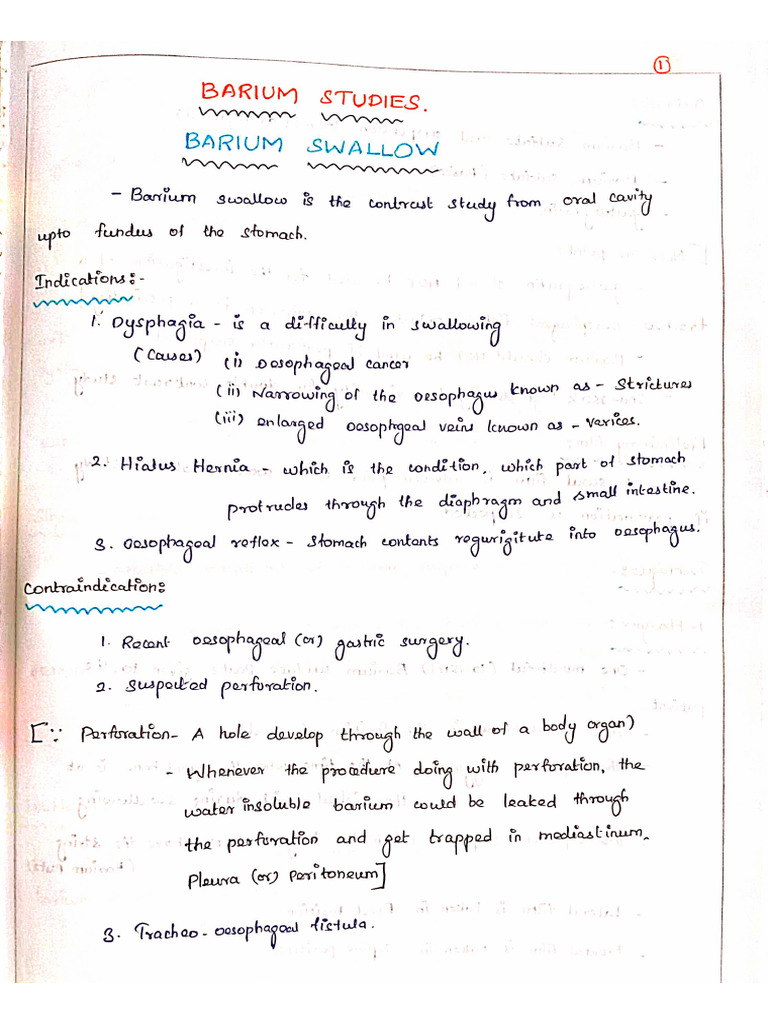 1
BARIUM STUDIES.
BARIUM SWALLOW
- Barium swallow is the contrast study from oral cavity
upto fundus of the stomach.
Indications:-
1. Dysphagia - is a difficulty in swallowing
(Causes) (i) Oesophageal cancer
(ii) Narrowing of the oesophagus known as - Strictures
(iii) enlarged oesophgeal veins known as - Varices.
2. Hiatus Hernia - which is the condition, which part of stomach
protrudes through the diaphragm and small intestine.
3. Oesophageal reflex - Stomach contents regurigitute into oesophagus.
Contraindication:
1. Recent oesophageal (or) gastric surgery.
2. Suspected perforation.
[∵ Perforation - A hole develop through the wall of a body organ)
- Whenever the procedure doing with perforation, the
water insoluble barium could be leaked through
the perforation and get trapped in mediastinum,
Pleura (or) Peritoneum]
3. Tracheo - oesophageal fistula.